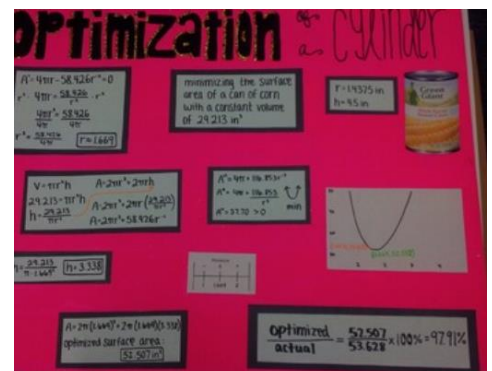 Optimization of a cylinder
A'=4πr-58.426r⁻²=0
r²·4πr=58.426/r²·r²
4πr³/4π=58.426/4π
r³=58.426/4π r=1.669
minimizing the surface
area of a can of corn
with a constant volume
of 29.213 in³
r=1.4375 in
h=4.5 in
Green
Giant
V=πr²h A=2πr²+2πrh
29.213=πr²h A=2πr²+2πr(29.213/πr²)
h=29.213/πr² A=2πr²+58.426r⁻¹
A"=4π+116.852r⁻³
A"=4π+116.852/r³
A"=37.70>0 min
h=29.213/π·1.669² h=3.338
1.669
A=2π(1.669)²+2π(1.669)(3.338)
optimized surface area:
52.507in²
optimized/actual=52.507/53.628×100%=97.91%